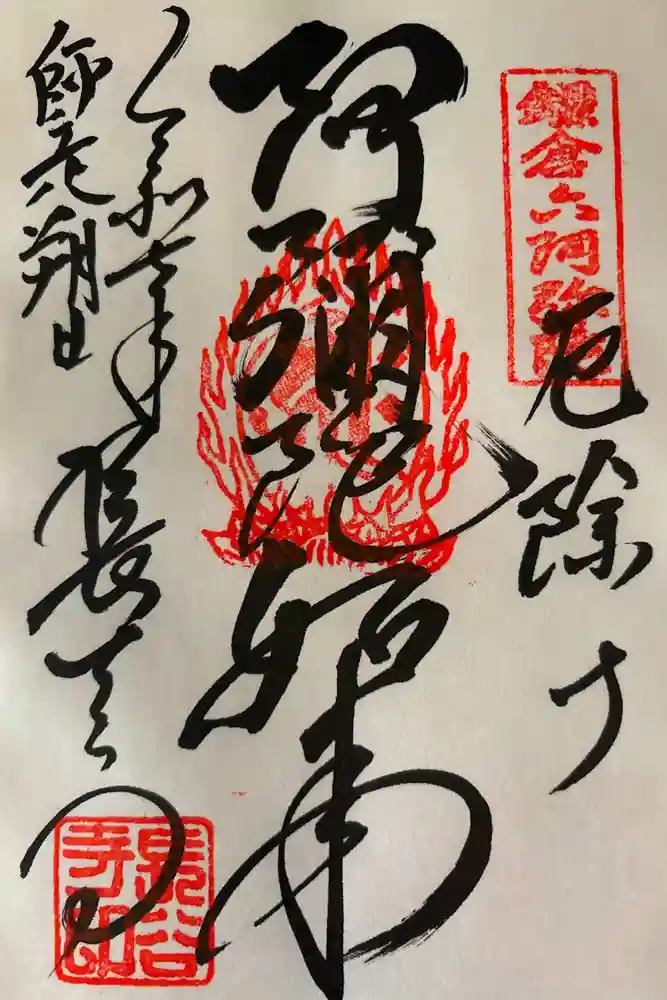 鎌倉六阿弥陀
厄除ケ
阿彌陀如来
令和七年
師走朔日
長谷寺
長谷寺印